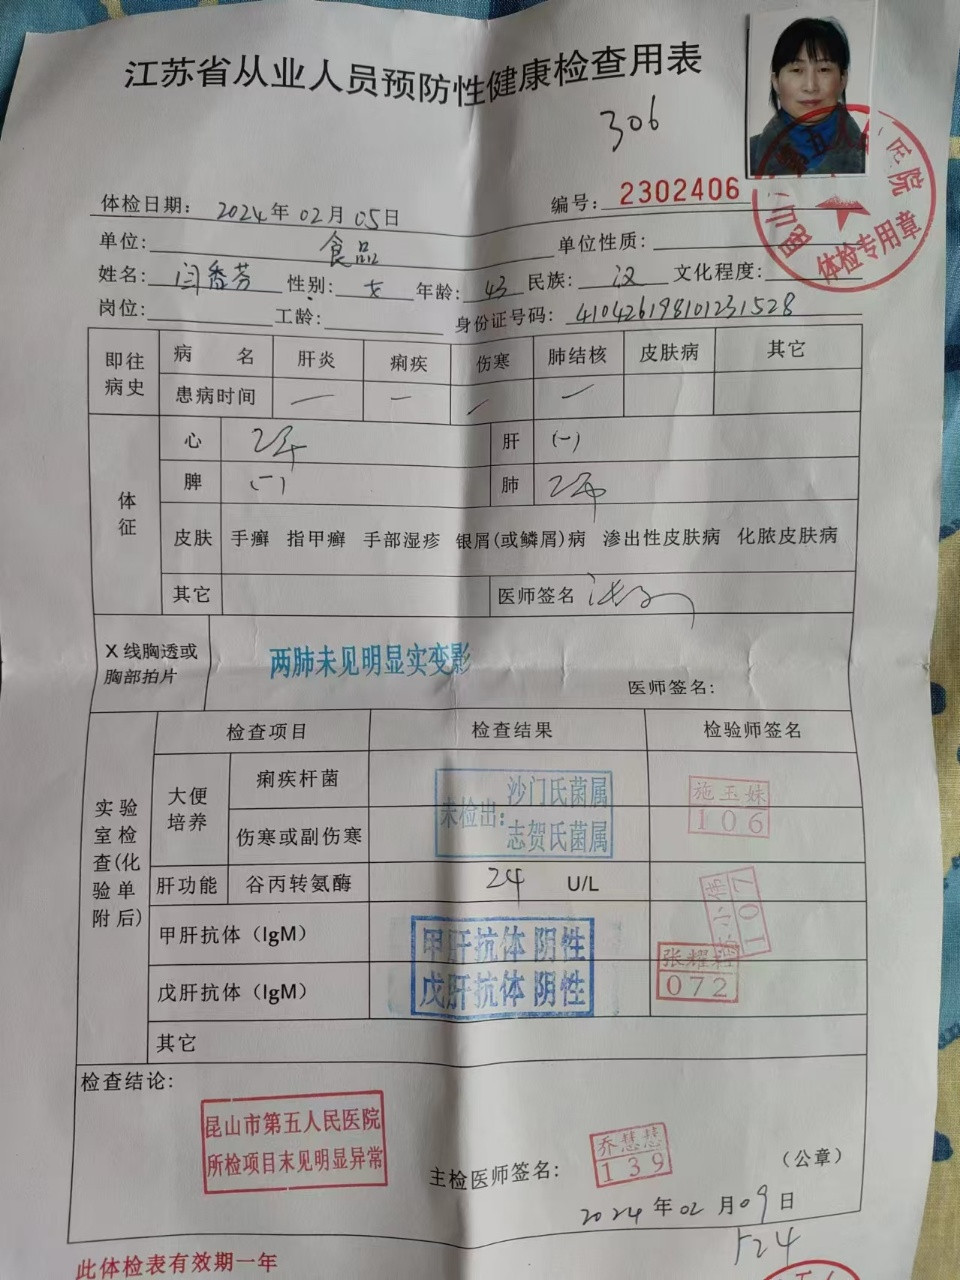 江苏省从业人员预防性健康检查用表
306
体检日期: 2024年02月05日 编号: 2302406
单位: 食品 单位性质:
姓名: 闫香芬 性别: 女 年龄: 43 民族: 汉 文化程度:
岗位: 工龄: 身份证号码: 410426198101231528
昆山 第五人 医院
体检专用章
即往病史 病名 肝炎 痢疾 伤寒 肺结核 皮肤病 其它
患病时间 — — — —
体征 心 肝 (一)
脾 (一) 肺
皮肤 手癣 指甲癣 手部湿疹 银屑(或鳞屑)病 渗出性皮肤病 化脓皮肤病
其它 医师签名
X线胸透或胸部拍片 两肺未见明显实变影 医师签名:
实验室检查(化验单附后) 检查项目 检查结果 检验师签名
大便培养 痢疾杆菌 未检出: 沙门氏菌属 施玉妹
伤寒或副伤寒 志贺氏菌属 106
肝功能 谷丙转氨酶 24 U/L 107
甲肝抗体(IgM) 甲肝抗体 阴性
戊肝抗体(IgM) 戊肝抗体 阴性 072
其它
检查结论:
昆山市第五人民医院
所检项目未见明显异常
主检医师签名: 乔慧慧 139 (公章)
2024年02月09日
此体检表有效期一年